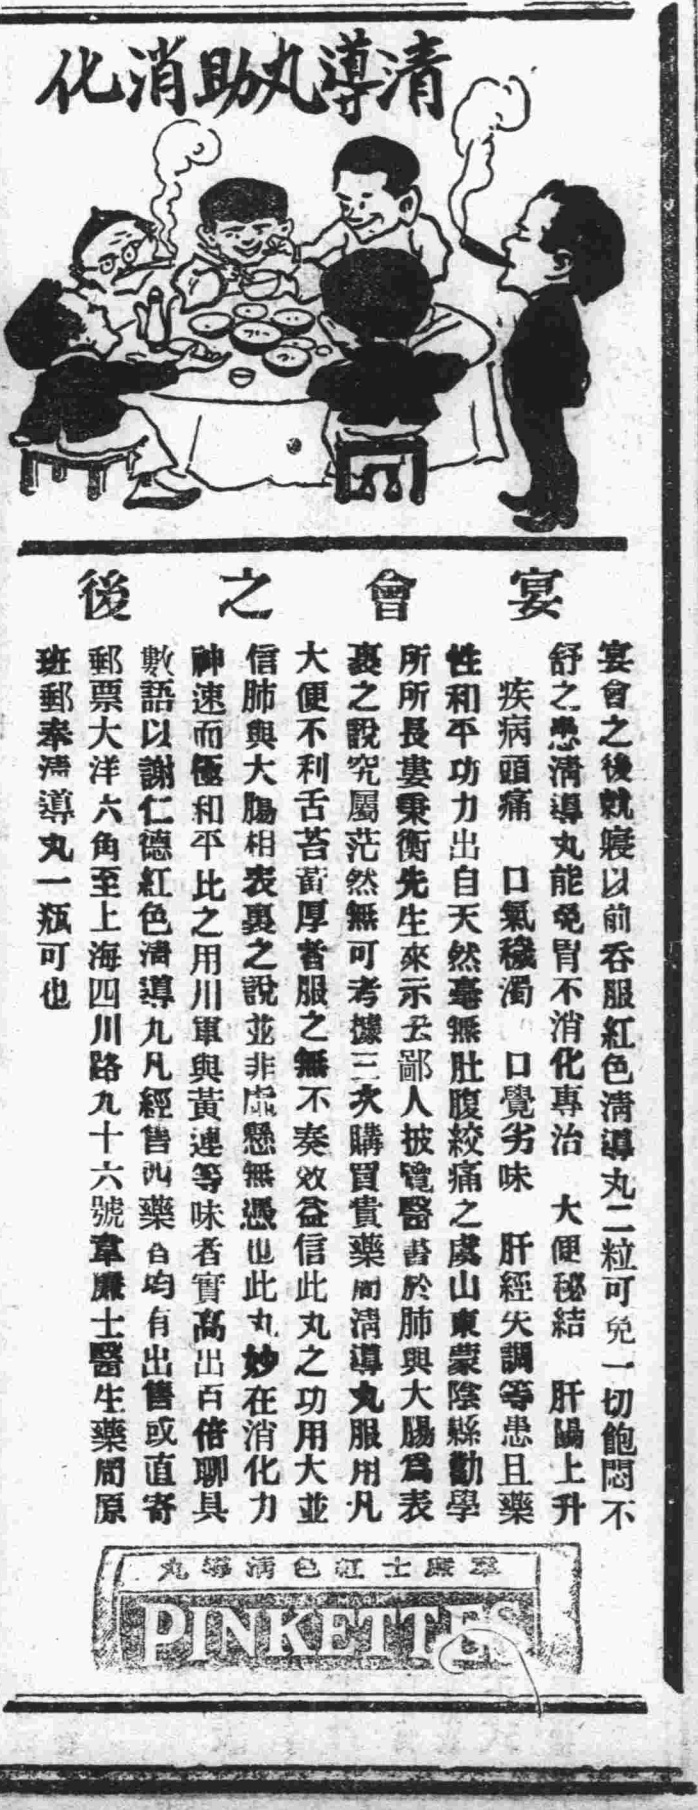 清導丸助消化
宴會之後
宴會之後就寢以前吞服紅色清導丸二粒可免一切飽悶不
舒之患清導丸能免胃不消化專治　大便秘結　肝陽上升
疾病頭痛　口氣穢濁　口覺劣味　肝經失調等患且藥
性和平功力出自天然毫無肚腹絞痛之虞山東蒙陰縣勸學
所所長婁秉衡先生來示云鄙人披覽醫書於肺與大腸爲表
裏之說究屬茫然無可考據三次購買貴藥局清導丸服用凡
大便不利舌苔黃厚者服之無不奏效益信此丸之功用大並
信肺與大腸相表裏之說並非虛懸無憑也此丸妙在消化力
神速而極和平比之用川軍與黃連等味者實高出百倍聊具
數語以謝仁德紅色清導丸凡經售西藥者均有出售或直寄
郵票大洋六角至上海四川路九十六號韋廉士醫生藥局原
班郵奉清導丸一瓶可也
韋廉士紅色清導丸
PINKETTES